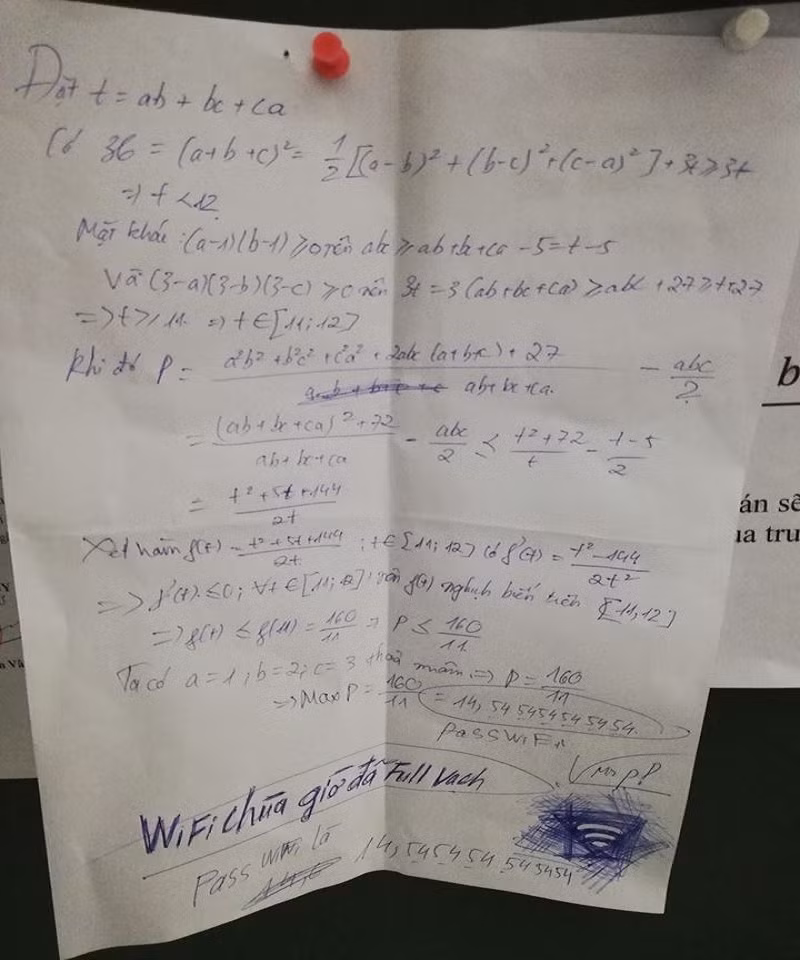 Đặt t = ab + bc + ca
Có 36 = (a+b+c)² = 1/2 [(a-b)² + (b-c)² + (c-a)²] + 3t ≥ 3t
=> t ≤ 12
Mặt khác: (a-1)(b-1) ≥ 0 nên abc ≥ ab+bc+ca - 5 = t - 5
Và (3-a)(3-b)(3-c) ≥ 0 nên 3t = 3(ab+bc+ca) ≥ abc + 27 ≥ t+27
=> t ≥ 11 => t ∈ [11; 12]
Khi đó P = (a²b² + b²c² + c²a² + 2abc(a+b+c) + 72)/(ab+bc+ca) - abc/2
= ((ab+bc+ca)² + 72)/(ab+bc+ca) - abc/2 ≤ (t²+72)/t - (t-5)/2
= (t² + 5t + 144)/2t
Xét hàm f(t) = (t²+5t+144)/2t ; t ∈ [11; 12] có f'(t) = (t²-144)/2t²
=> f'(t) ≤ 0; ∀t ∈ [11; 12]; nên f(t) nghịch biến trên [11, 12]
=> f(t) ≤ f(11) = 160/11 => P ≤ 160/11
Ta có a = 1; b = 2; c = 3 thoả mãn => P = 160/11
=> Max P = 160/11 = 14,5454545454
Pass WiFi
WiFi chùa giờ đã Full Vạch
Pass wifi là 14,545454545454
b
án sẽ
ua tru